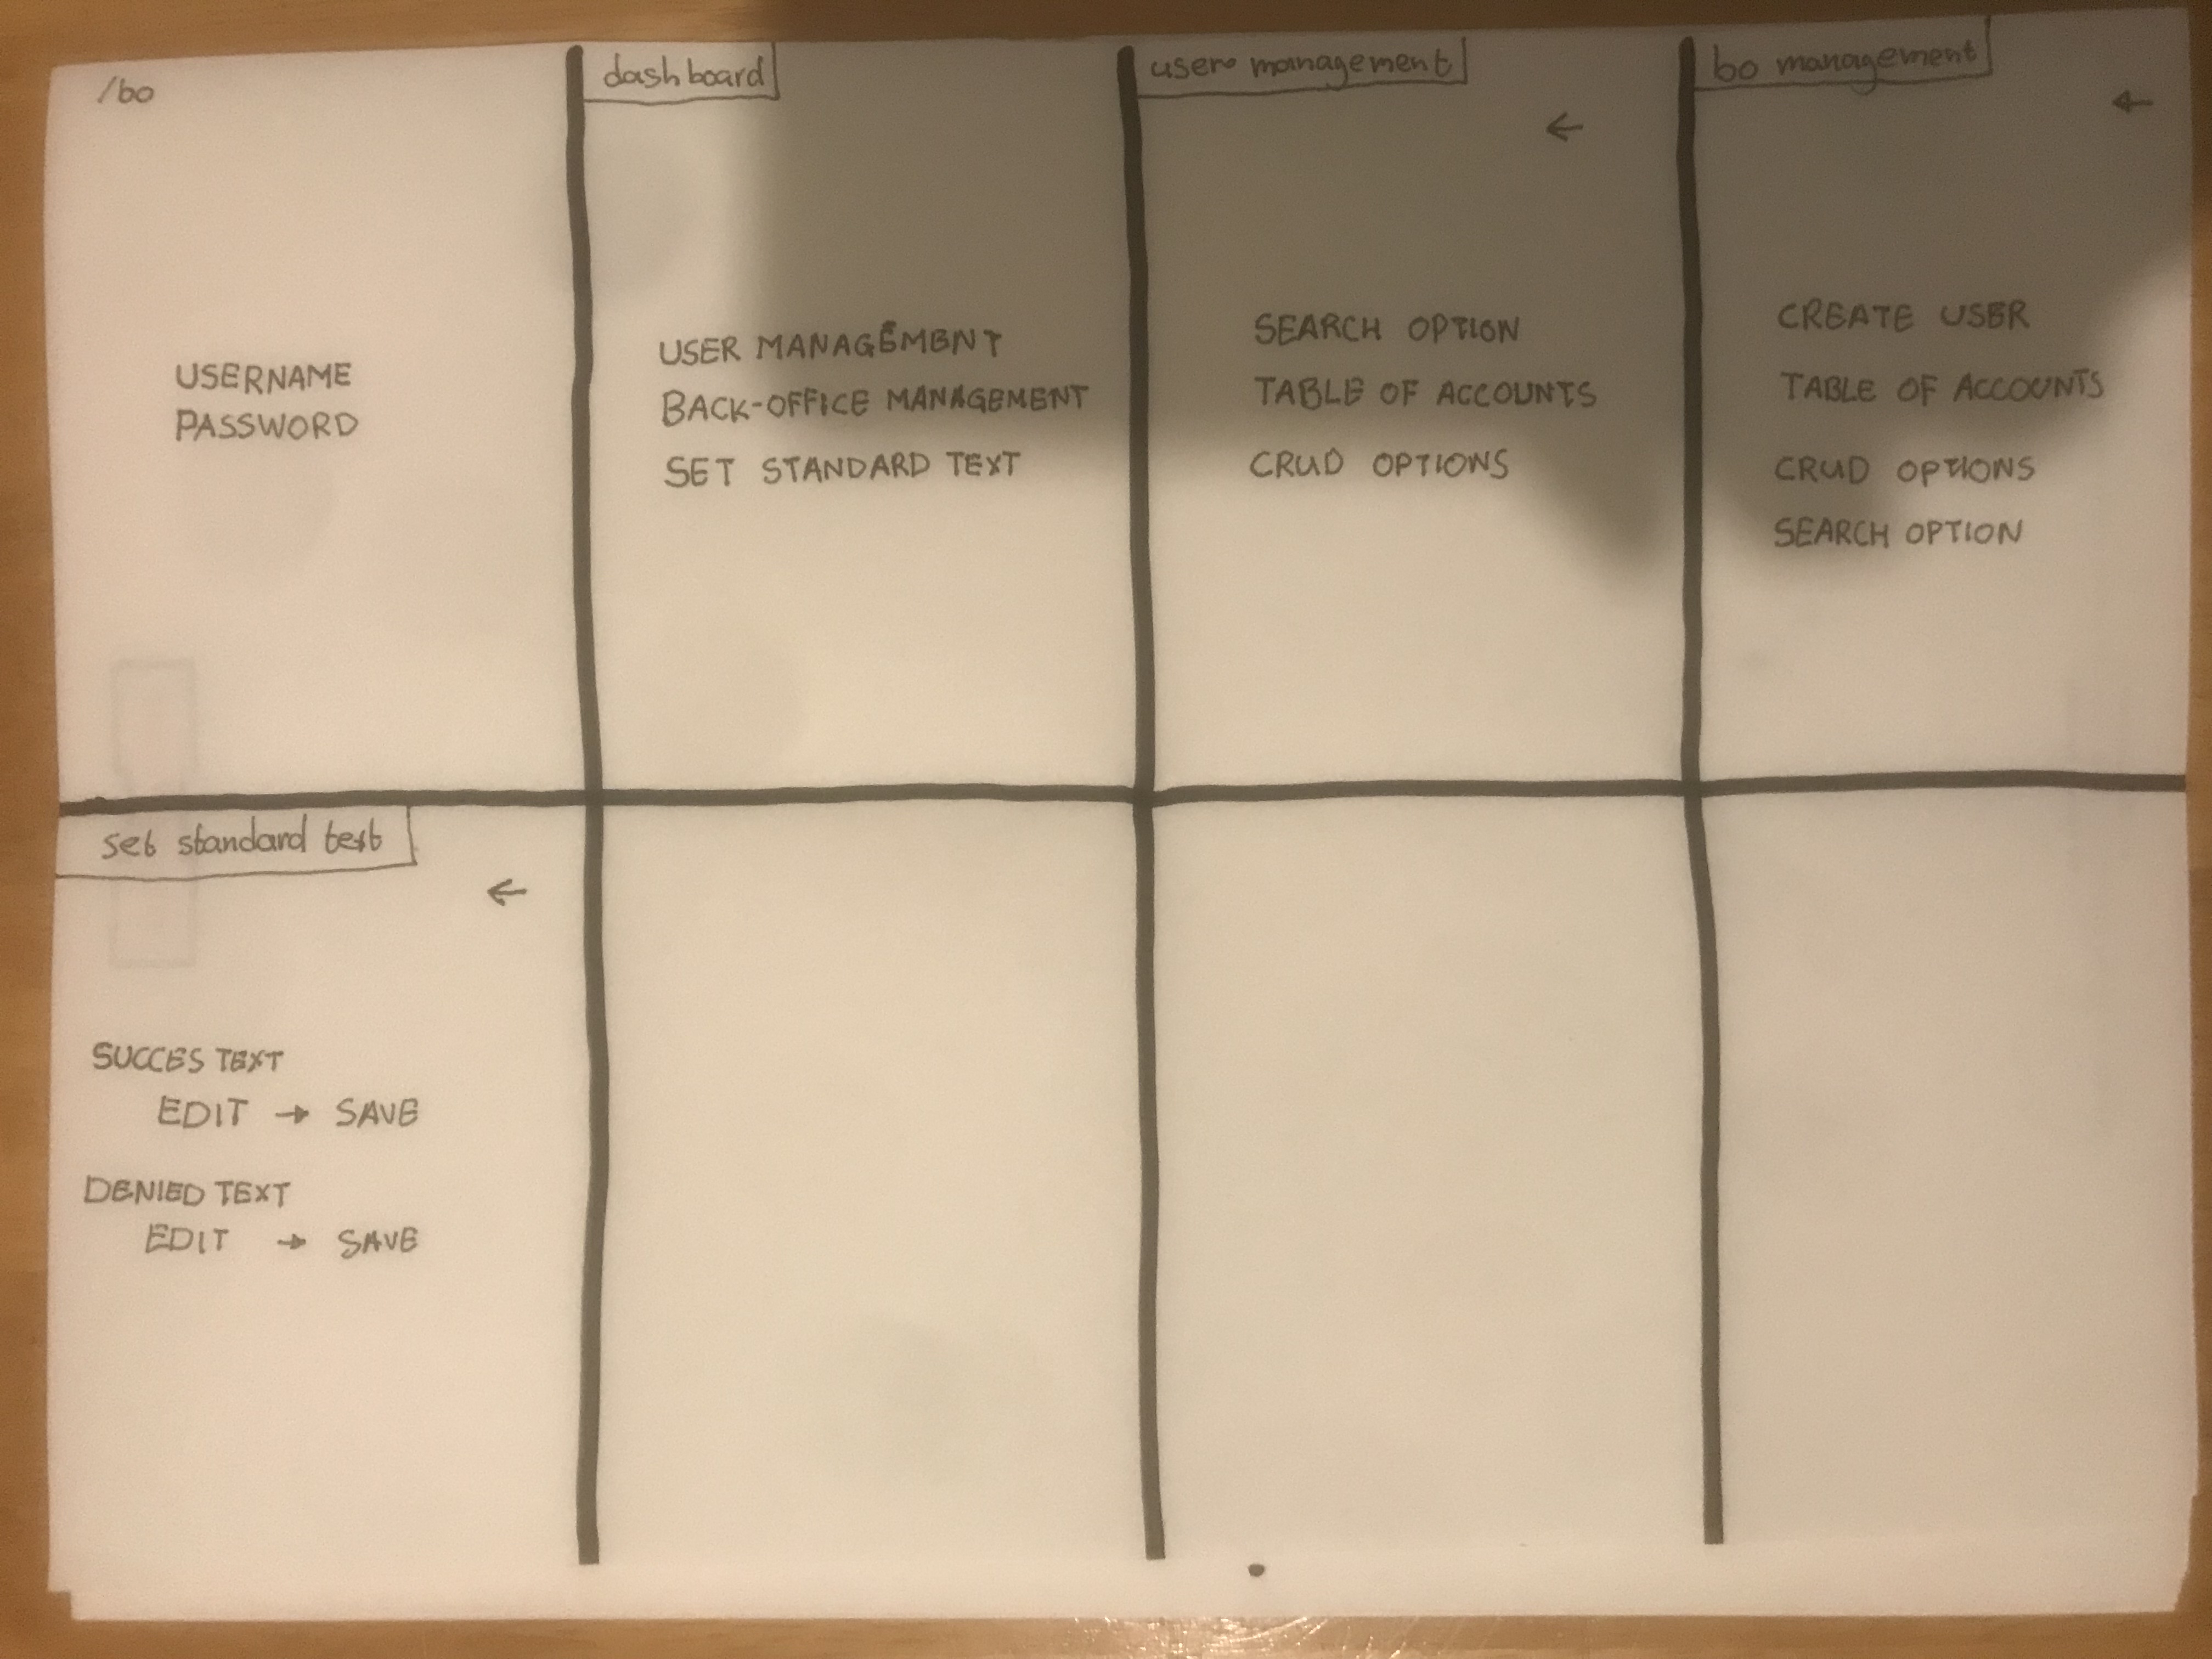 /bo
USERNAME
PASSWORD
dashboard
USER MANAGEMENT
BACK-OFFICE MANAGEMENT
SET STANDARD TEXT
user management
←
SEARCH OPTION
TABLE OF ACCOUNTS
CRUD OPTIONS
bo management
←
CREATE USER
TABLE OF ACCOUNTS
CRUD OPTIONS
SEARCH OPTION
set standard text
←
SUCCES TEXT
EDIT → SAVE
DENIED TEXT
EDIT → SAVE